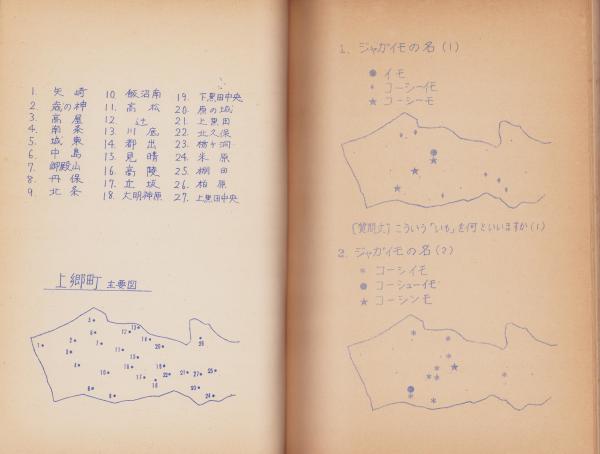 1. 矢崎
2. 歳の神
3. 高屋
4. 南条
5. 城東
6. 中島
7. 御殿山
8. 丹保
9. 北条
10. 飯沼南
11. 高松
12. 辻
13. 川底
14. 都出
15. 見晴
16. 高陵
17. 丘坂
18. 大明神原
19. 下黒田中央
20. 原の城
21. 上黒田
22. 北久保
23. 栃ヶ洞
24. 米原
25. 棚田
26. 柏原
27. 上黒田中央
上郷町 主要図
1. ジャガイモの名(1)
イモ
コーシーイモ
コーシーモ
[質問文] こういう「いも」を何といいますか(1)
2. ジャガイモの名(2)
コーシイモ
コーシューイモ
コーシンモ